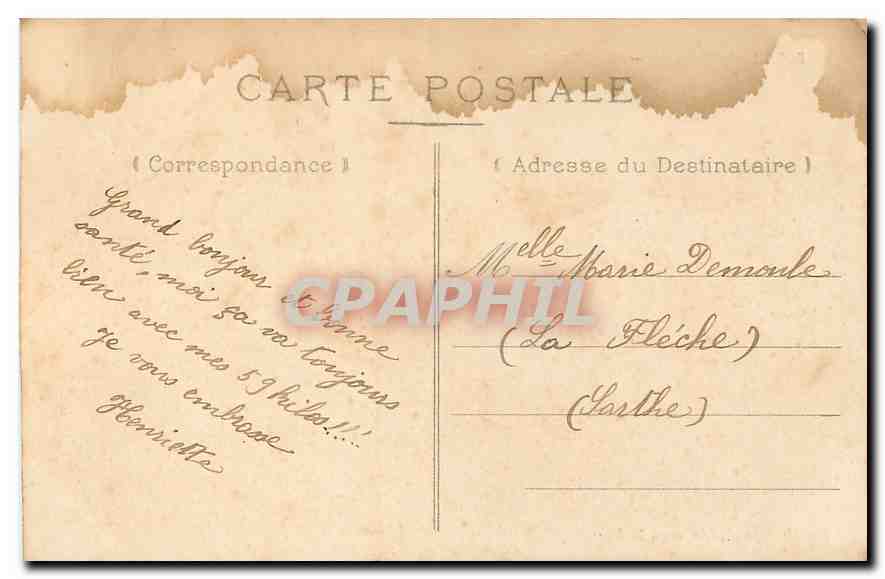 CARTE POSTALE
( Correspondance )
Grand bonjour et bonne
santé, moi ça va toujours
bien avec mes 59 kilos!!!!
Je vous embrasse
Henriette
( Adresse du Destinataire )
Melle Marie Demoule
(La Fléche)
(Sarthe)
CPAPHIL